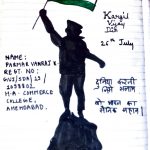 Kargil
Vijay
Din
26th July
NAME:
PARMAR VANRAJ K.
REGT. NO:
GUJ/SDA/13/
1098802
H.A. COMMERCE
COLLEGE,
AHEMDABAD.
दुनिया करती
जिसे सलाम
वो भारत का
सैनिक महान!